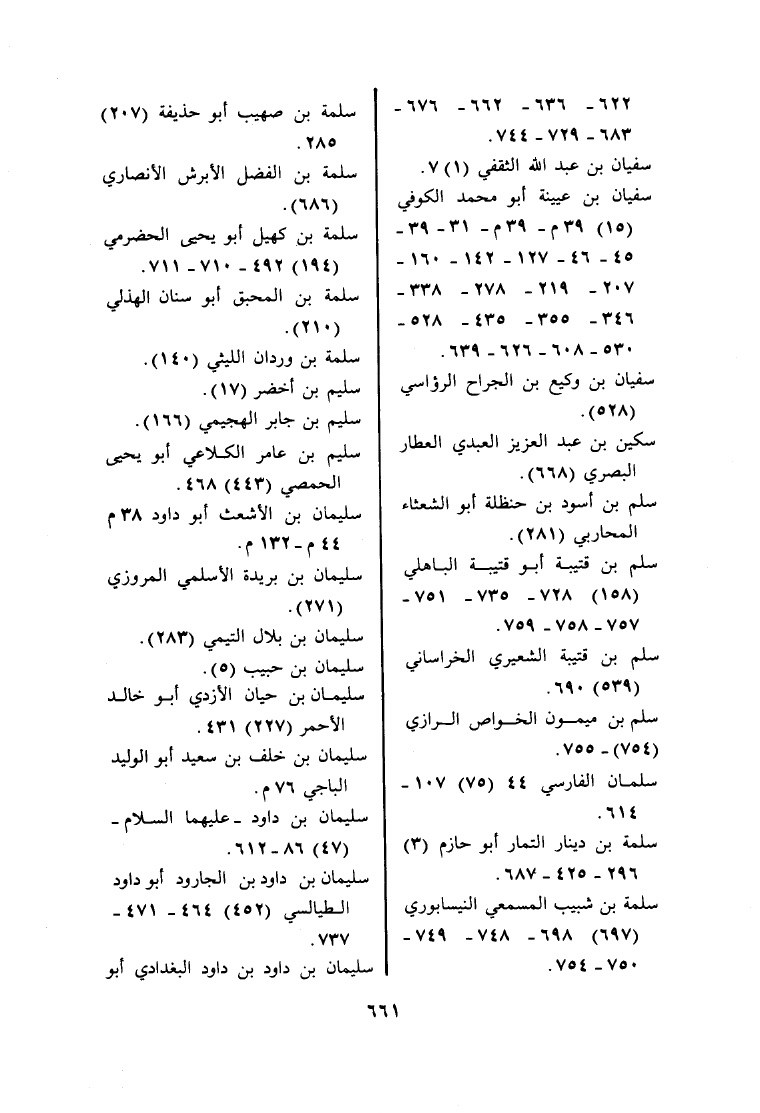 ٦٢٢- ٦٣٦- ٦٦٢- ٦٧٦-
٦٨٣- ٧٢٩- ٧٤٤.
سفيان بن عبد الله الثقفي (١) ٧.
سفيان بن عيينة أبو محمد الكوفي
(١٥) ٣٩م- ٣٩م- ٣١- ٣٩-
٤٥- ٤٦- ١٢٧- ١٤٢- ١٦٠-
٢٠٧- ٢١٩- ٢٧٨- ٣٣٨-
٣٤٦- ٣٥٥- ٤٣٥- ٥٢٨-
٥٣٠- ٦٠٨- ٦٢٦- ٦٣٩.
سفيان بن وكيع بن الجراح الرؤاسي
(٥٢٨).
سكين بن عبد العزيز العبدي العطار
البصري (٦٦٨).
سلم بن أسود بن حنظلة أبو الشعثاء
المحاربي (٢٨١).
سلم بن قتيبة أبو قتيبة الباهلي
(١٥٨) ٧٢٨- ٧٣٥- ٧٥١-
٧٥٧- ٧٥٨- ٧٥٩.
سلم بن قتيبة الشعيري الخراساني
(٥٣٩) ٦٩٠.
سلم بن ميمون الخواص الرازي
(٧٥٤)- ٧٥٥.
سلمان الفارسي ٤٤ (٧٥) ١٠٧-
٦١٤.
سلمة بن دينار التمار أبو حازم (٣)
٢٩٦- ٤٢٥- ٦٨٧.
سلمة بن شبيب المسمعي النيسابوري
(٦٩٧) ٦٩٨- ٧٤٨- ٧٤٩-
٧٥٠- ٧٥٤.
سلمة بن صهيب أبو حذيفة (٢٠٧)
٢٨٥.
سلمة بن الفضل الأبرش الأنصاري
(٦٨٦).
سلمة بن كهيل أبو يحيى الحضرمي
(١٩٤) ٤٩٢- ٧١٠- ٧١١.
سلمة بن المحبق أبو سنان الهذلي
(٢١٠).
سلمة بن وردان الليثي (١٤٠).
سليم بن أخضر (١٧).
سليم بن جابر الهجيمي (١٦٦).
سليم بن عامر الكلاعي أبو يحيى
الحمصي (٤٤٣) ٤٦٨.
سليمان بن الأشعث أبو داود ٣٨م
٤٤م- ١٣٢م.
سليمان بن بريدة الأسلمي المروزي
(٢٧١).
سليمان بن بلال التيمي (٢٨٣).
سليمان بن حبيب (٥).
سليمان بن حيان الأزدي أبو خالد
الأحمر (٢٢٧) ٤٣١.
سليمان بن خلف بن سعيد أبو الوليد
الباجي ٧٦م.
سليمان بن داود - عليهما السلام-
(٤٧) ٨٦- ٦١٢.
سليمان بن داود بن الجارود أبو داود
الطيالسي (٤٥٢) ٤٦٤- ٤٧١-
٧٣٧.
سليمان بن داود بن داود البغدادي أبو
٦٦١